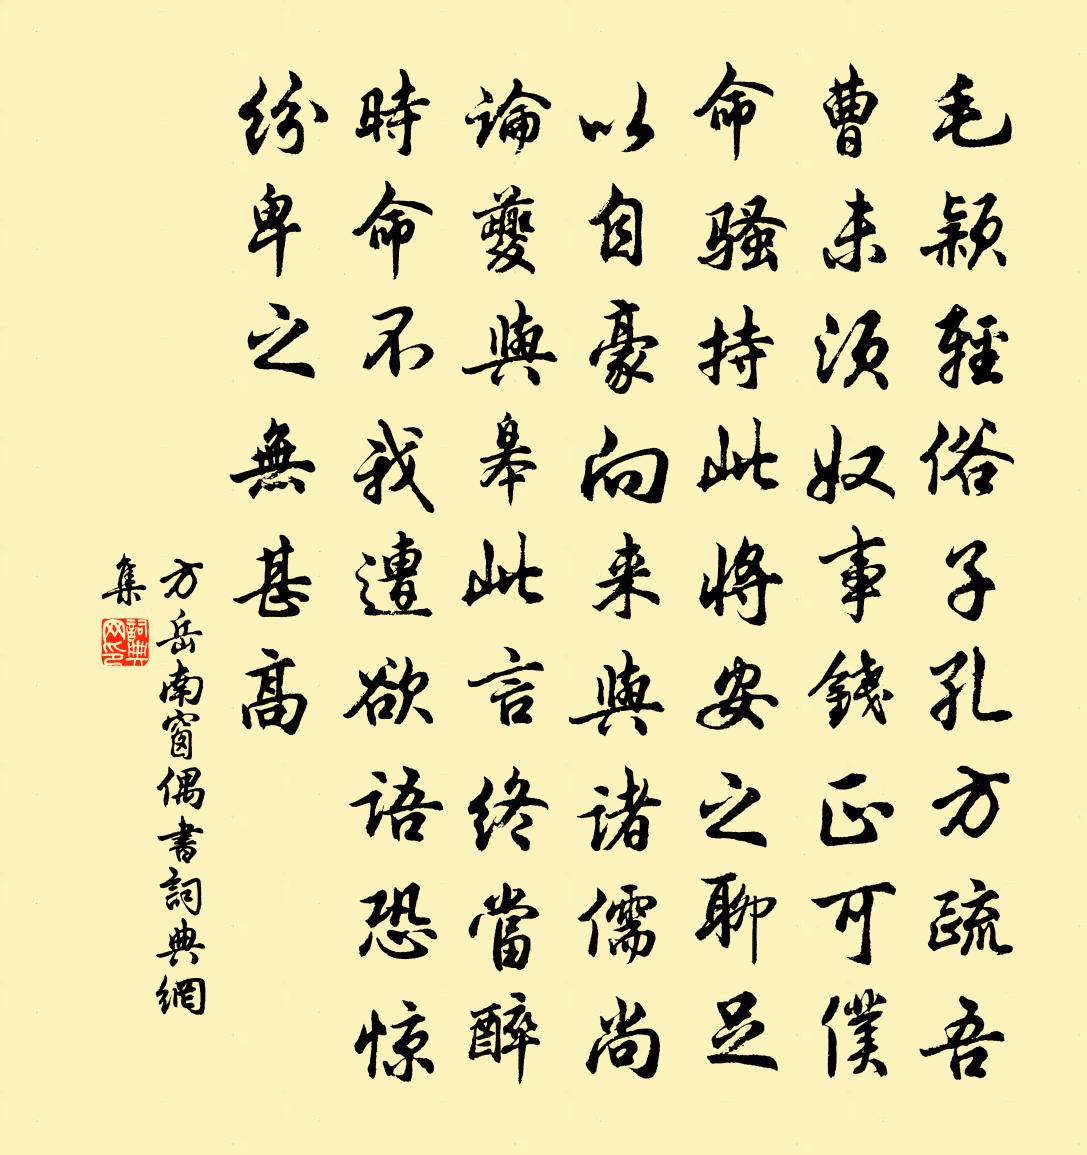 毛颖輕俗子孔方疏吾
曹未須奴事錢正可僕
命騷持此將安之聊足
以自豪向来與諸儒尚
論夔與皋此言終當醉
時命不我遭欲語恐惊
紛卑之無甚高
方岳南窗偶書詞典網
集
詞典網印